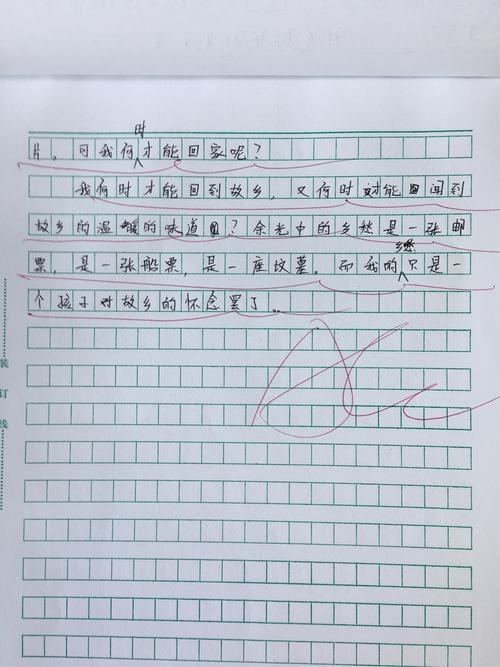 片，可我何时才能回家呢？
我何时才能回到故乡，又何时才能闻到
故乡的温暖的味道？余光中的乡愁是一张邮
票，是一张船票，是一座坟墓。而我的乡愁只是一
个孩子对故乡的怀念罢了…
装
订
线